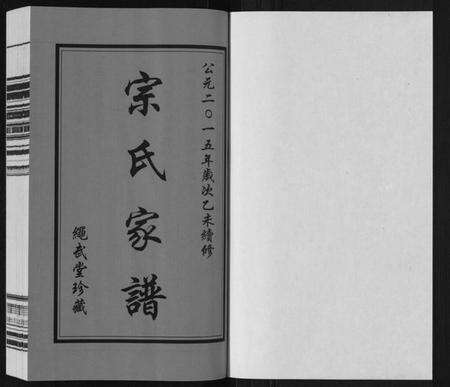 公元二〇一五年歲次乙未續修
宗氏家譜
繩武堂珍藏